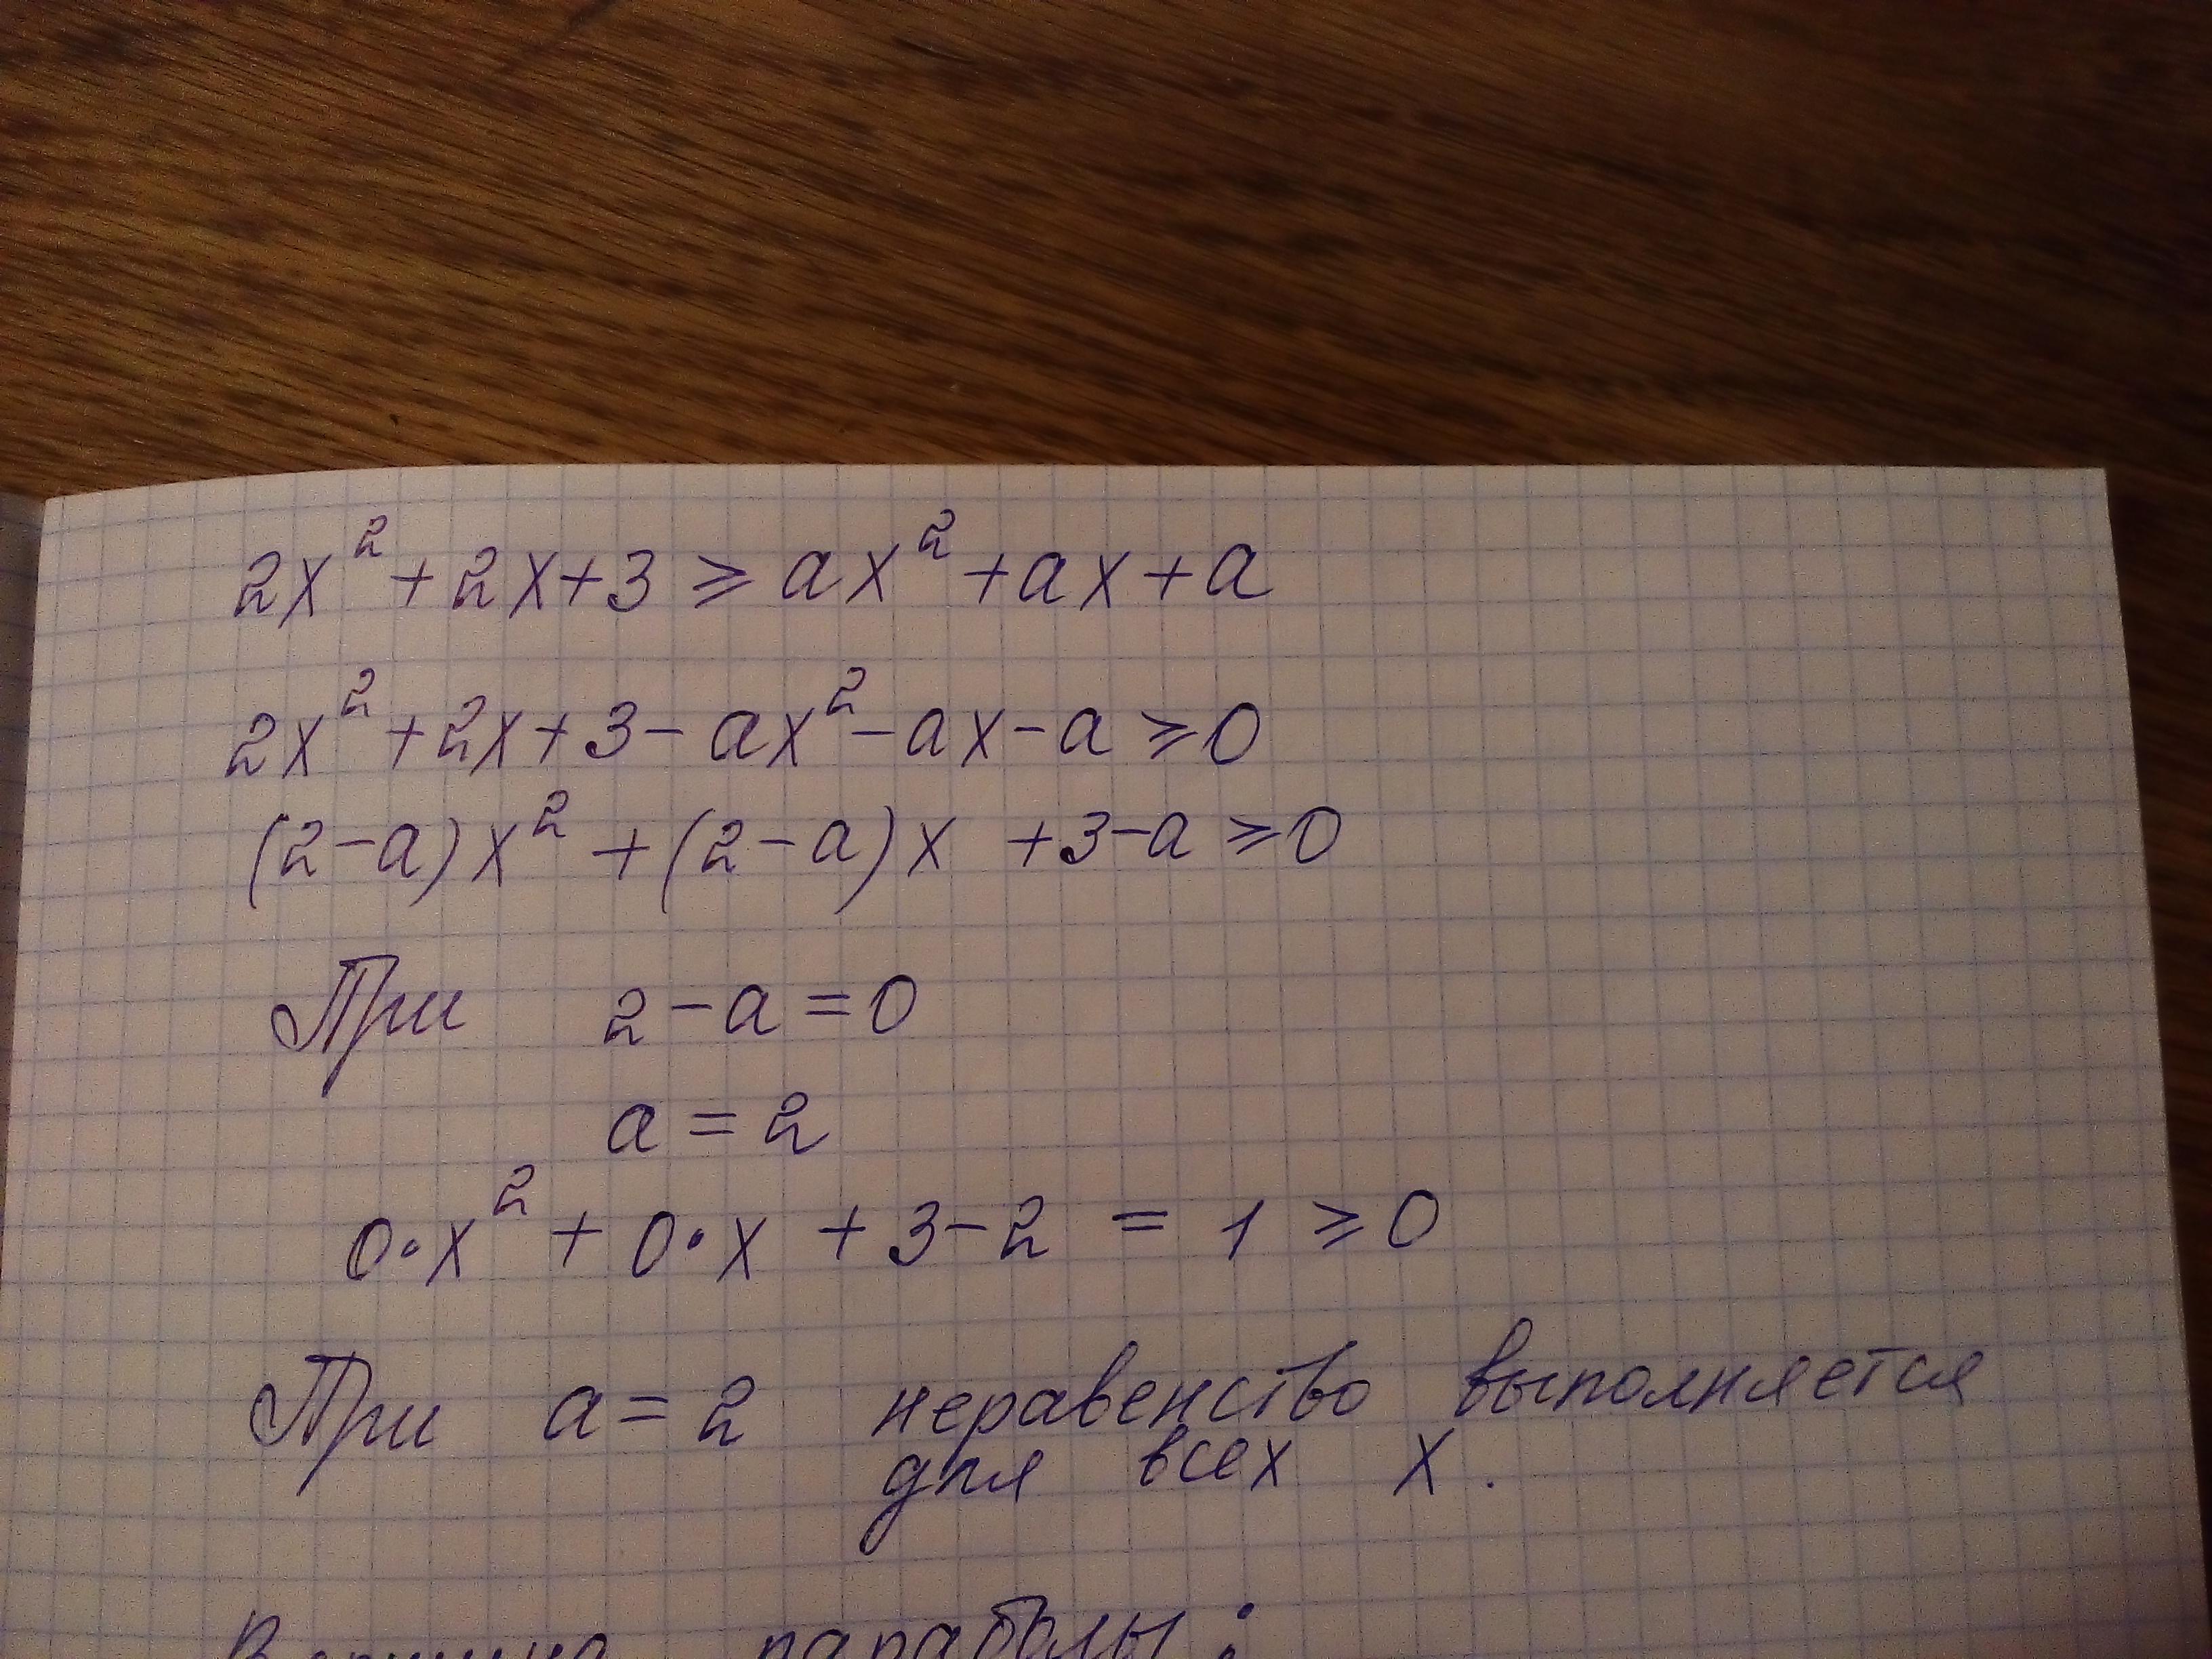 2x² + 2x + 3 ⩾ ax² + ax + a
2x² + 2x + 3 − ax² − ax − a ⩾ 0
(2−a)x² + (2−a)x + 3−a ⩾ 0
При 2−a = 0
a = 2
0•x² + 0•x + 3−2 = 1 ⩾ 0
При a = 2 неравенство выполняется
для всех x.
Вершина параболы: